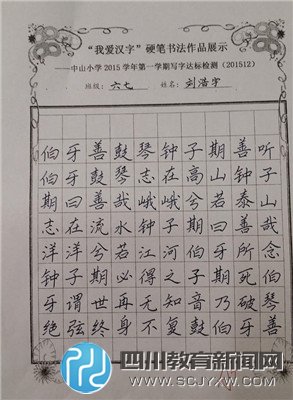 “我爱汉字”硬笔书法作品展示
——中山小学2015学年第一学期写字达标检测（201512）
班级：六七 姓名：刘浩宇
伯牙善鼓琴钟子期善听
伯牙鼓琴志在高山钟子
期曰善哉峨峨兮若泰山
志在流水钟子期曰善哉
洋洋兮若江河伯牙所念
钟子期必得之子期死伯
牙谓世再无知音乃破琴
绝弦终身不复鼓伯牙善
四川教育新闻网
WWW.SCJYXW.COM